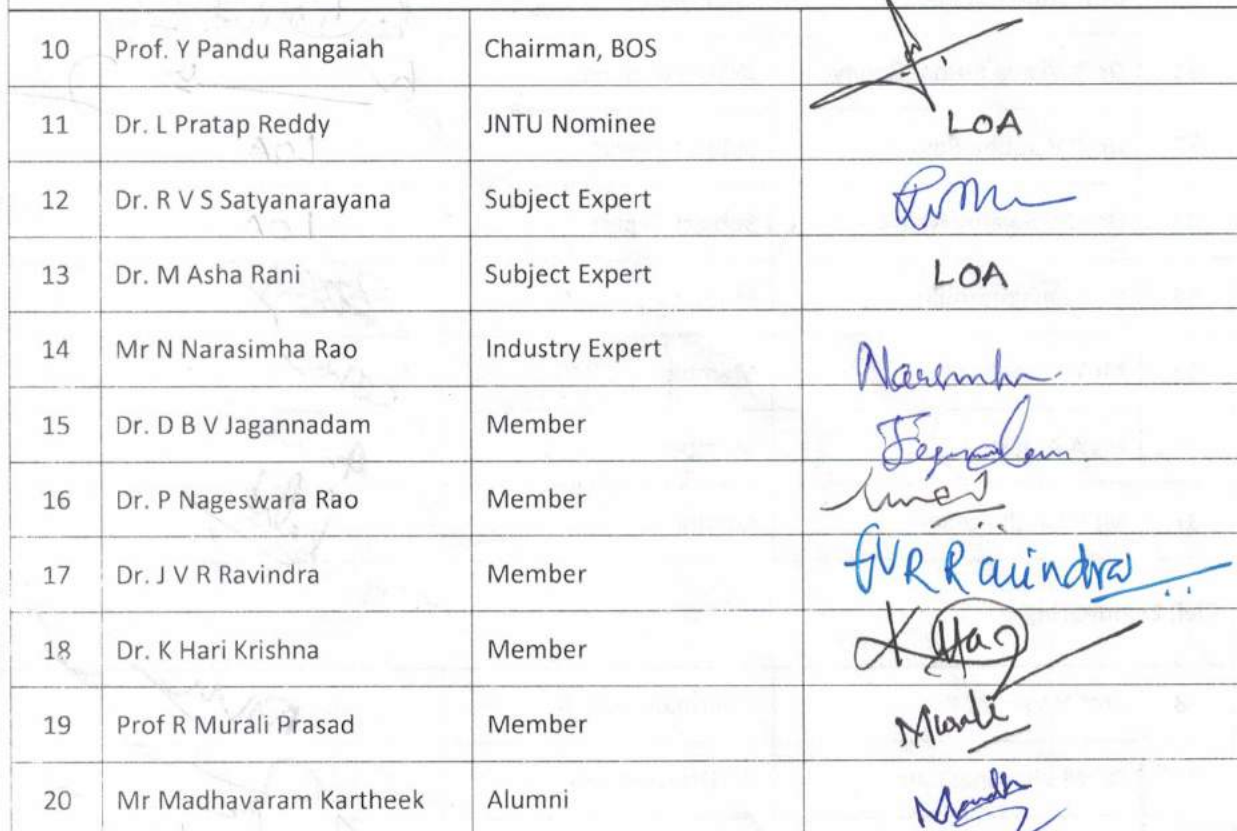 10 Prof. Y Pandu Rangaiah Chairman, BOS
11 Dr. L Pratap Reddy JNTU Nominee LOA
12 Dr. R V S Satyanarayana Subject Expert
13 Dr. M Asha Rani Subject Expert LOA
14 Mr N Narasimha Rao Industry Expert
15 Dr. D B V Jagannadam Member
16 Dr. P Nageswara Rao Member
17 Dr. J V R Ravindra Member
18 Dr. K Hari Krishna Member
19 Prof R Murali Prasad Member Murali
20 Mr Madhavaram Kartheek Alumni